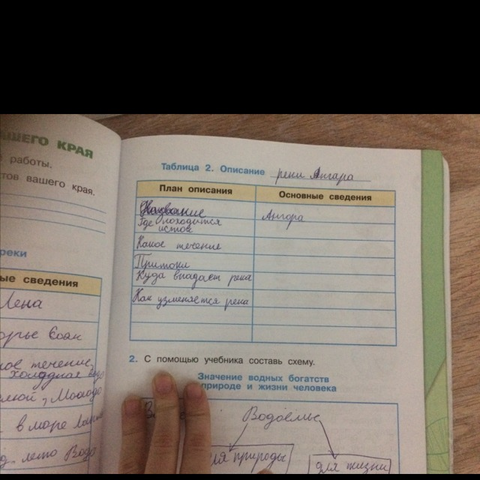 ШЕГО КРАЯ
работы.
тов вашего края.
реки
ные сведения
Лена
в море
Таблица 2. Описание реки Ангара
План описания Основные сведения
Название Ангара
Где находится
исток
Какое течение
Притоки
Куда впадает река
Как изменяется река
2. С помощью учебника составь схему.
Значение водных богатств
природе и жизни человека
Водоёмы
для природы для жизни